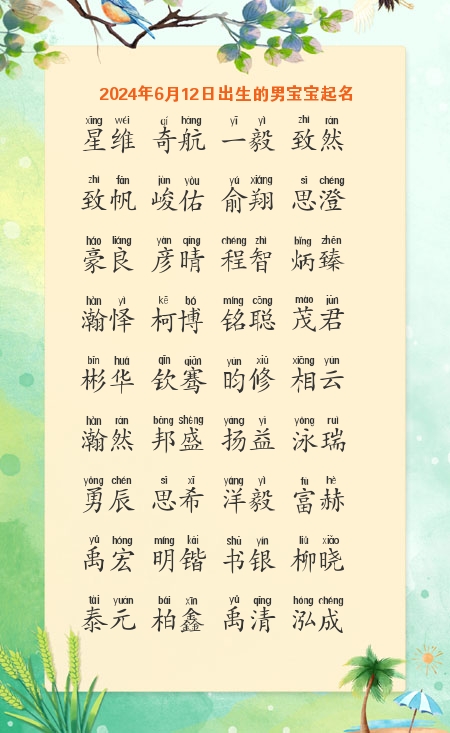 2024年6月12日出生的男宝宝起名
xīng wéi qí háng yī yì zhì rán
星维 奇航 一毅 致然
zhì fān jùn yòu yú xiáng sī chéng
致帆 峻佑 俞翔 思澄
háo liáng yàn qíng chéng zhì bǐng zhēn
豪良 彦晴 程智 炳臻
hàn yì kē bó míng cōng mào jūn
瀚怿 柯博 铭聪 茂君
bīn huá qīn qiān yún xiū xiāng yún
彬华 钦骞 昀修 相云
hàn rán bāng shèng yáng yì yǒng ruì
瀚然 邦盛 扬益 泳瑞
yǒng chén sī xī yáng yì fù hè
勇辰 思希 洋毅 富赫
yǔ hóng míng kǎi shū yín liǔ xiǎo
禹宏 明锴 书银 柳晓
tài yuán bǎi xīn yǔ qīng hóng chéng
泰元 柏鑫 禹清 泓成